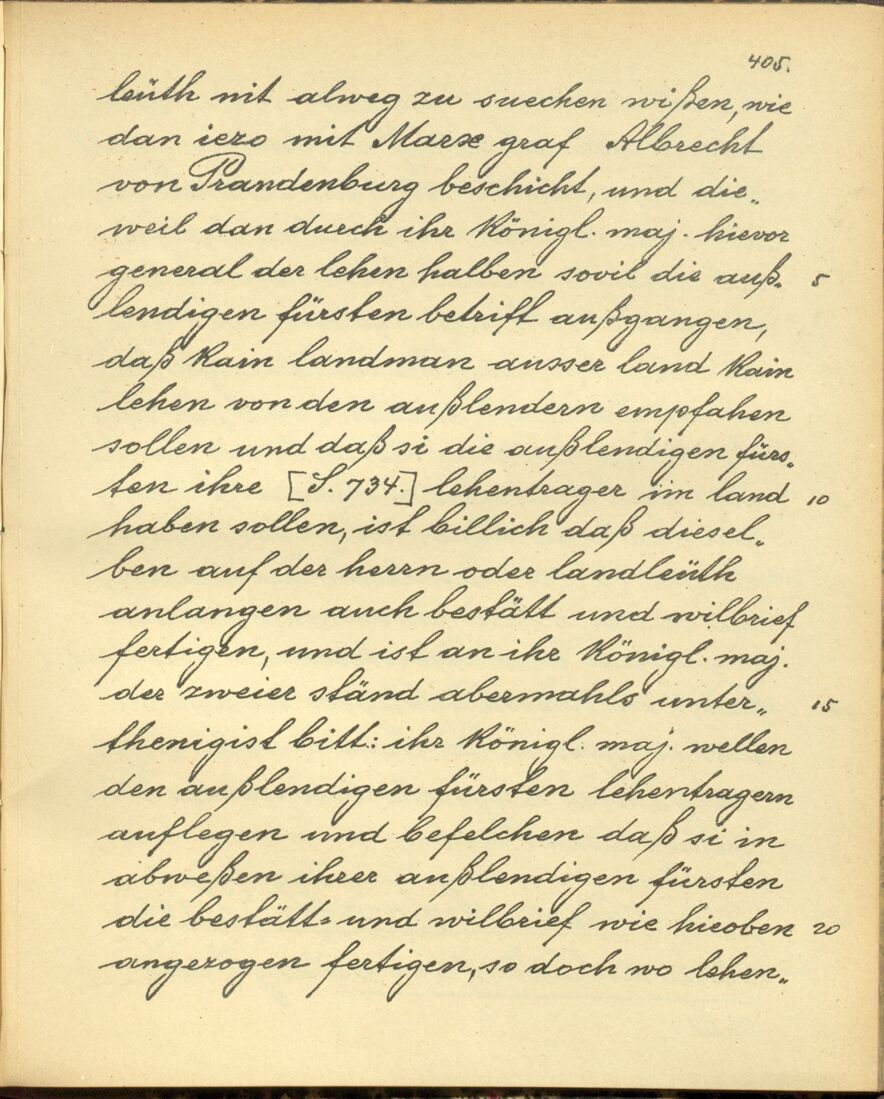 405.
leüth nit alweg zu suechen wißen, wie
dan iezo mit Marx graf Albrecht
von Prandenburg beschicht, und die„
weil dan durch ihr königl. maj. hievor
general der lehen halben sovil die auß„ 5
lendigen fürsten betrift außgangen,
daß kain landman ausser land kain
lehen von den außlendern empfahen
sollen und daß si die außlendigen fürs„
ten ihre [S. 734.] lehentrager im land 10
haben sollen, ist billich daß diesel„
ben auf der herrn oder landleüth
anlangen auch bestätt und wilbrief
fertigen, und ist an ihr königl. maj.
der zweier ständ abermahls unter„ 15
thenigist bitt: ihr königl. maj. wellen
den außlendigen fürsten lehentragern
auflegen und befelchen daß si in
abweßen ihrer außlendigen fürsten
die bestätt= und wilbrief wie hieoben 20
angezogen fertigen, so doch wo lehen„